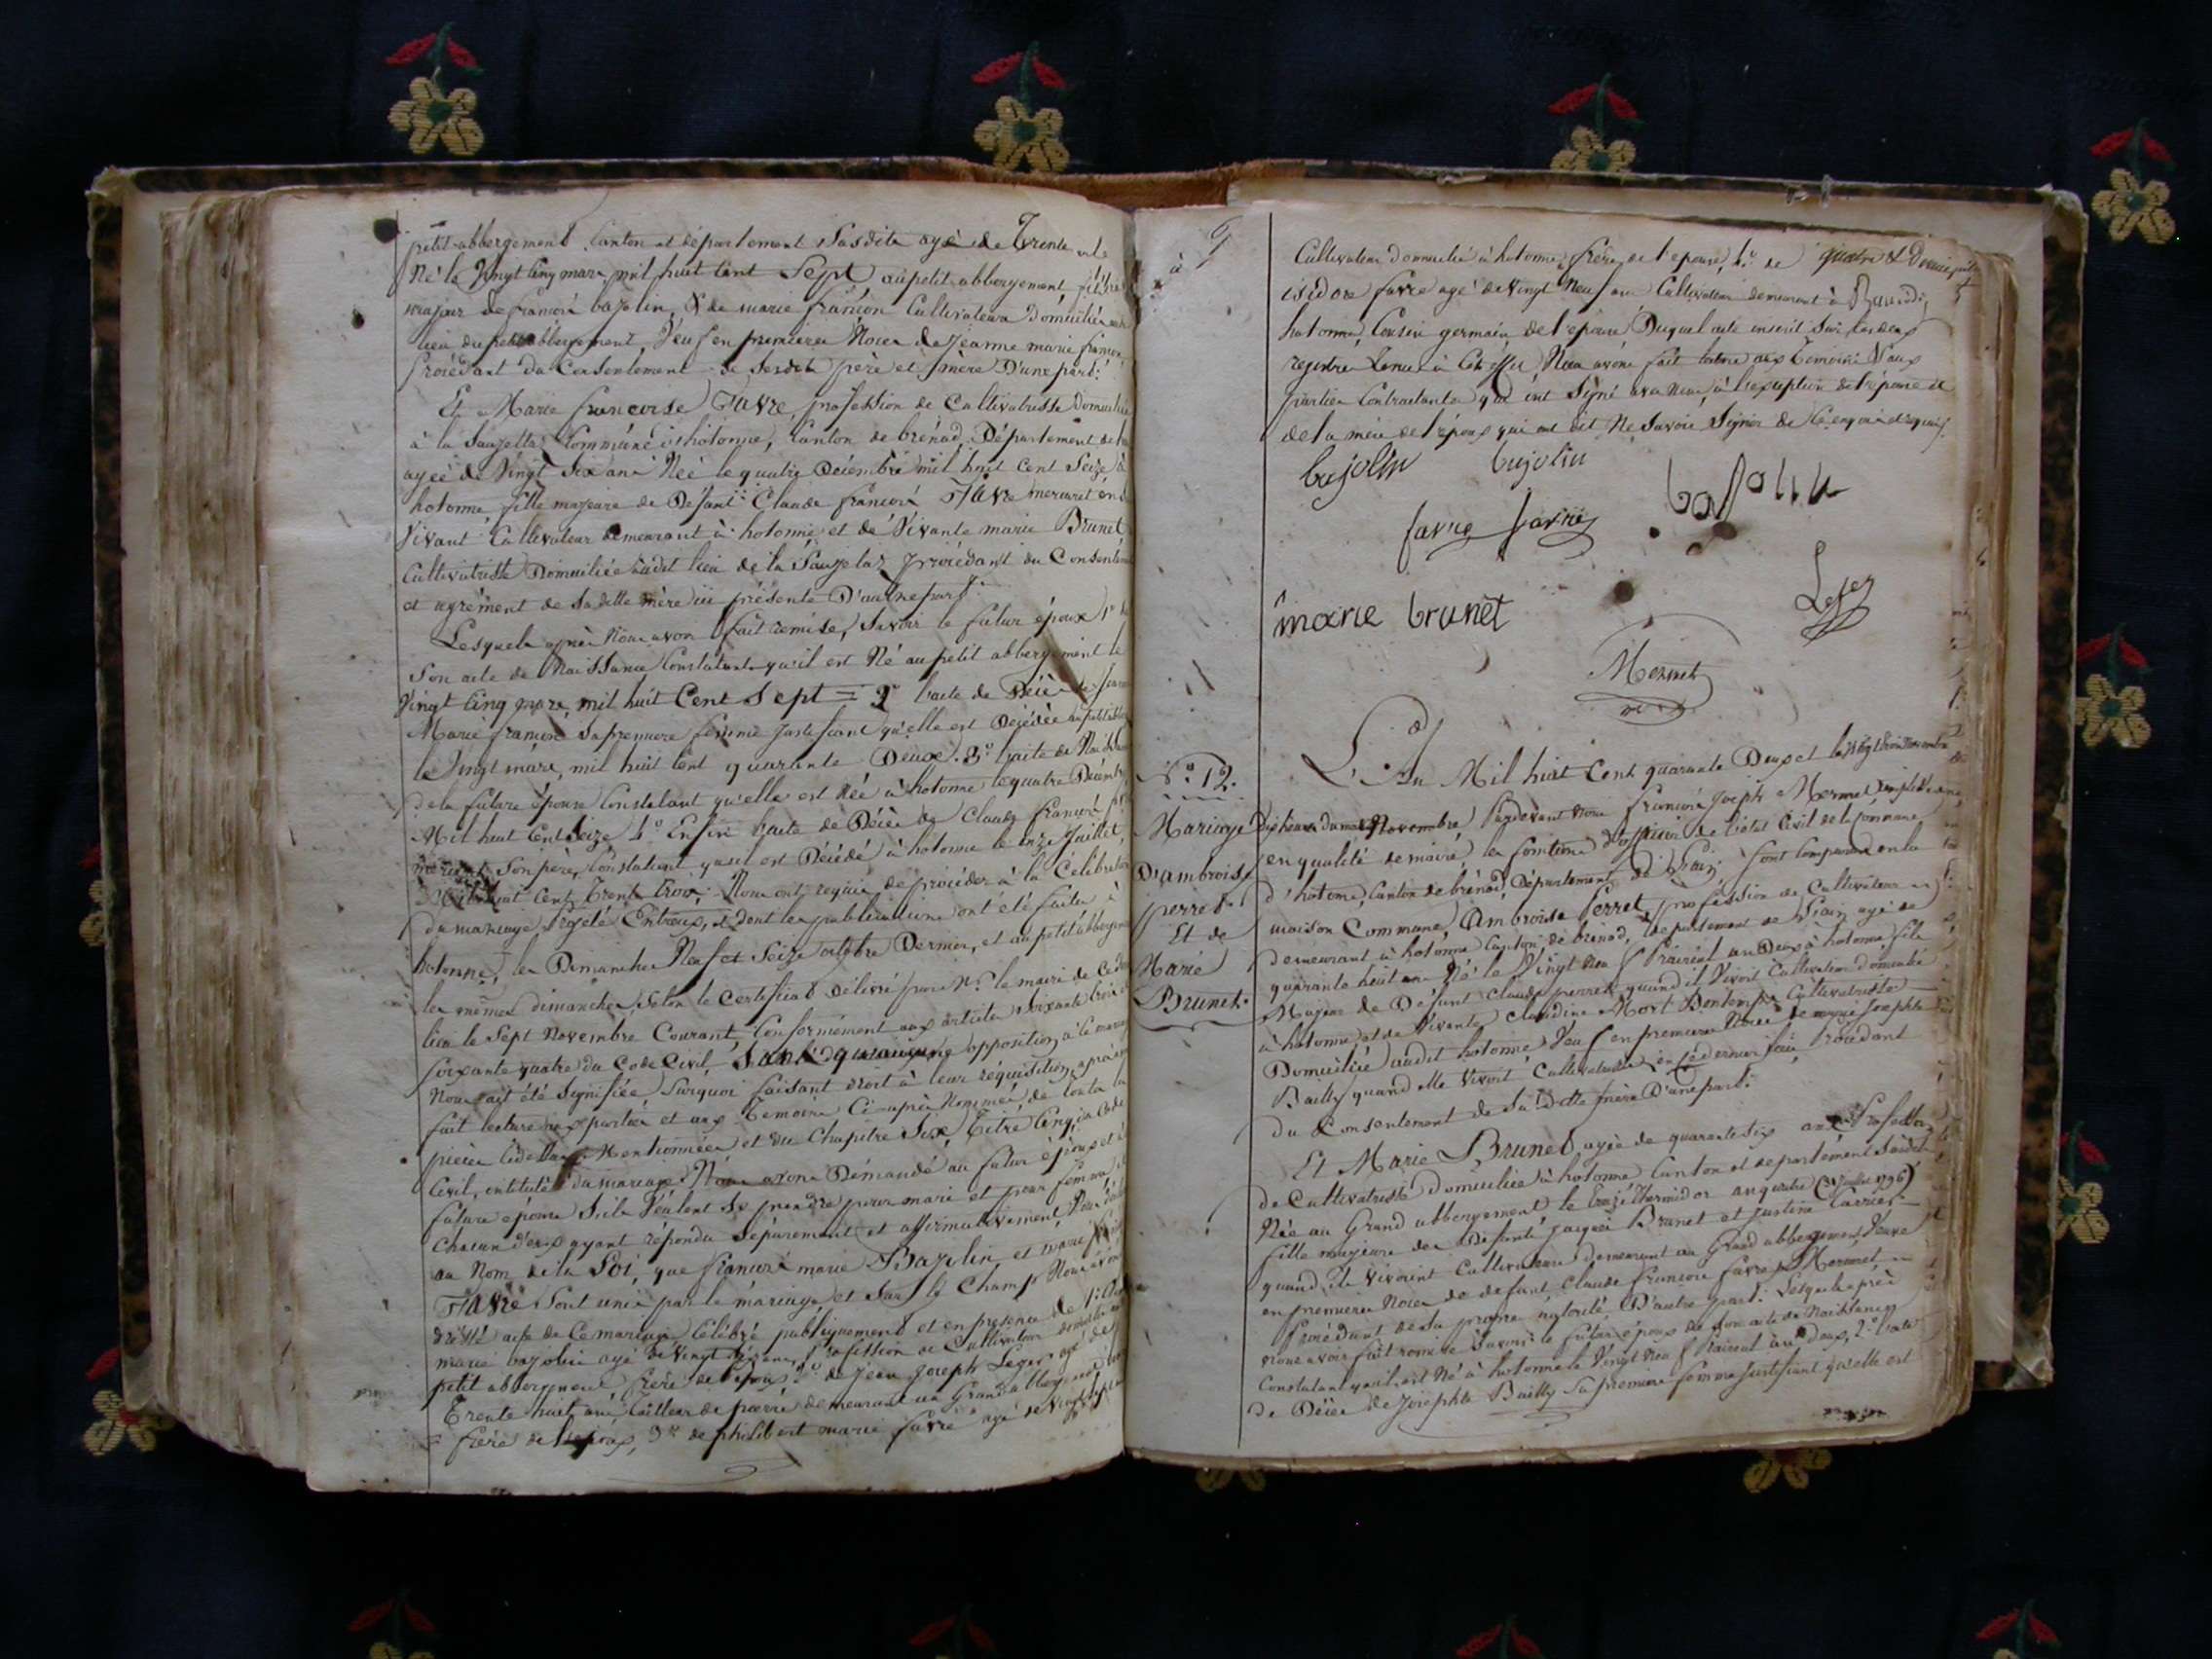 petit abbergement Canton et département Susdits agé de Trente
Né le Vingt Cinq mars mil huit Cent Sept, au petit abbergement fils
majeur de françois bajolin, & de marie françon Cultivateurs Domiciliés
lieu du petit abbergement Veuf en premieres Noces de jeanne marie françon
procédant du Consentement de Sesdits père et mère D'une part:
Et Marie francoise FAVRE, profession de Cultivatrisse Domiciliée
à la Saujettaz Commune d'hotonne, Canton de brénod Département de
agée de Vingt Six ans Née le quatre Décembre mil huit Cent Seize à
hotonne, fille majeure de Défunt Claude françois FAVRE mermet en
Vivant Cultivateur demeurant à hotonne et de Vivante marie Brunet
Cultivatrisse Domiciliée audit lieu de la Saujetaz procédant du Consentem
et agrément de Sa ditte mère ici présente D'autre part:
Lesquels après Nous avoir fait remise, Savoir le futur époux 1º
Son acte de Naissance Constatant qu'il est Né au petit abbergement le
Vingt Cinq mars, mil huit Cent Sept = 2º l'acte de Décès de
Marie françon Sa premiere femme justifiant qu'elle est Décédée au petit
le Vingt mars, mil huit Cent quarante Deux. 3º l'acte de Naissance
de la future épouse Constatant qu'elle est Née à hotonne le quatre Décembre
Mil huit Cent Seize 4º Enfin l'acte de Décès de Claude françois
mermet Son père, Constatant qu'il est Décédé à hotonne le onze Juillet
Mil huit Cent Trente Trois; Nous ont requis de procéder à la Célébration
du mariage Projeté Entr'eux, et dont les publications ont été faites à
hotonne, les Dimanches Neuf et Seize octobre Dernier, et au petit abbergem
les mêmes dimanches, Selon le Certificat délivré par Mr. le maire de Ce
lieu le Sept Novembre Courant, Conformément aux articles Soixante trois
Soixante quatre du Code Civil, Sans qu'aucune opposition à Ce mariage
Nous ait été Signifiée Surquoi faisant droit à leur réquisition, après
fait lecture aux parties et aux Temoins Ci-après Nommés de toutes les
pièces Cidessus Mentionnées et du Chapitre Six, Titre Cinq, du Code
Civil, intitulé du mariage Nous avons Démandé au futur époux et à
future épouse S'ils Veulent Se prendre pour mari et pour femme
Chacun d'eux ayant répondu Séparement et affirmativement,
au Nom de la Loi, que françois marie Bajolin et marie
FAVRE Sont unis par le mariage, et Sur le Champ Nous avons
dréssé acte de Ce mariage Célébré publiquement et en présence de 1º
marie bajolin agé de Vingt ans, Profession de Cultivateur
petit abbergement, frère de l'époux, 2º de Jean Joseph Leger agé de
Trente huit ans, tailleur de pierre demeurant au Grand abbergement
frère de l'époux, 3º de philibert marie favre agé de Vingt
à
Cultivateur Domicilié à hotonne, frère de l'épouse, 4º de
isidore favre agé de Vingt Neuf ans Cultivateur demeurant à
hotonne, Cousin germain de l'épouse Duquel acte inscrit Sur les deux
registres Tenus à Cet effet Nous avons fait lecture aux Temoins & aux
parties Contractantes qui ont Signé avec Nous, à l'exception de l'épouse et
de la mère de l'époux qui ont dit Ne Savoir Signer de Ce enquis et requis.
bajolin bajolin
bajolin
favre favre
marie brunet
Leger
Mermet
Nº 12.
Mariage
D'ambroise
perret
Et de
Marie
Brunet.
L'An Mil huit Cent quarante Deux et le Vingt trois Novembre
Dix heures du matin Novembre, Pardevant Nous françois Joseph Mermet
en qualité de maire, les fonctions d'officier de l'état Civil de la Commune
d'hotonne, Canton de brénod, Département de l'ain, Sont Comparus en la
maison Commune, Ambroise Perret, profession de Cultivateur
demeurant à hotonne Canton de brénod, département de l'ain agé de
quarante huit ans Né le Vingt Neuf Prairial an Deux à hotonne, fils
Majeur de Défunt Claude perret quand il Vivoit Cultivateur domicilié
à hotonne, et de Vivante Claudine Mort Bontemps Cultivatrisse
Domiciliée audit hotonne, Veuf en premieres Noces de marie Josephte
Bailly quand elle Vivoit Cultivatrisse en Ce dernier lieu, Procédant
du Consentement de Sa ditte mère D'une part:
Et Marie Brunet agée de quarante Six ans Profession
de Cultivatrisse domiciliée à hotonne Canton et département Susdits
Née au Grand abbergement le Thermidor an quatre (Juillet 1796)
fille majeure des Défunts jacques Brunet et justine Carrier
quand ils vivoient Cultivateurs demeurant au Grand abbergement Veuve
en premieres Noces de défunt Claude francois favre Mermet
Procédant de Sa propre autorité D'autre part: Lesquels après
nous avoir fait remise Savoir le futur époux de Son acte de Naissance
Constatant qu'il est Né à hotonne le Vingt Neuf Prairial an Deux, 2º l'acte
de Décès de Josephte Bailly Sa premiere femme justifiant qu'elle est